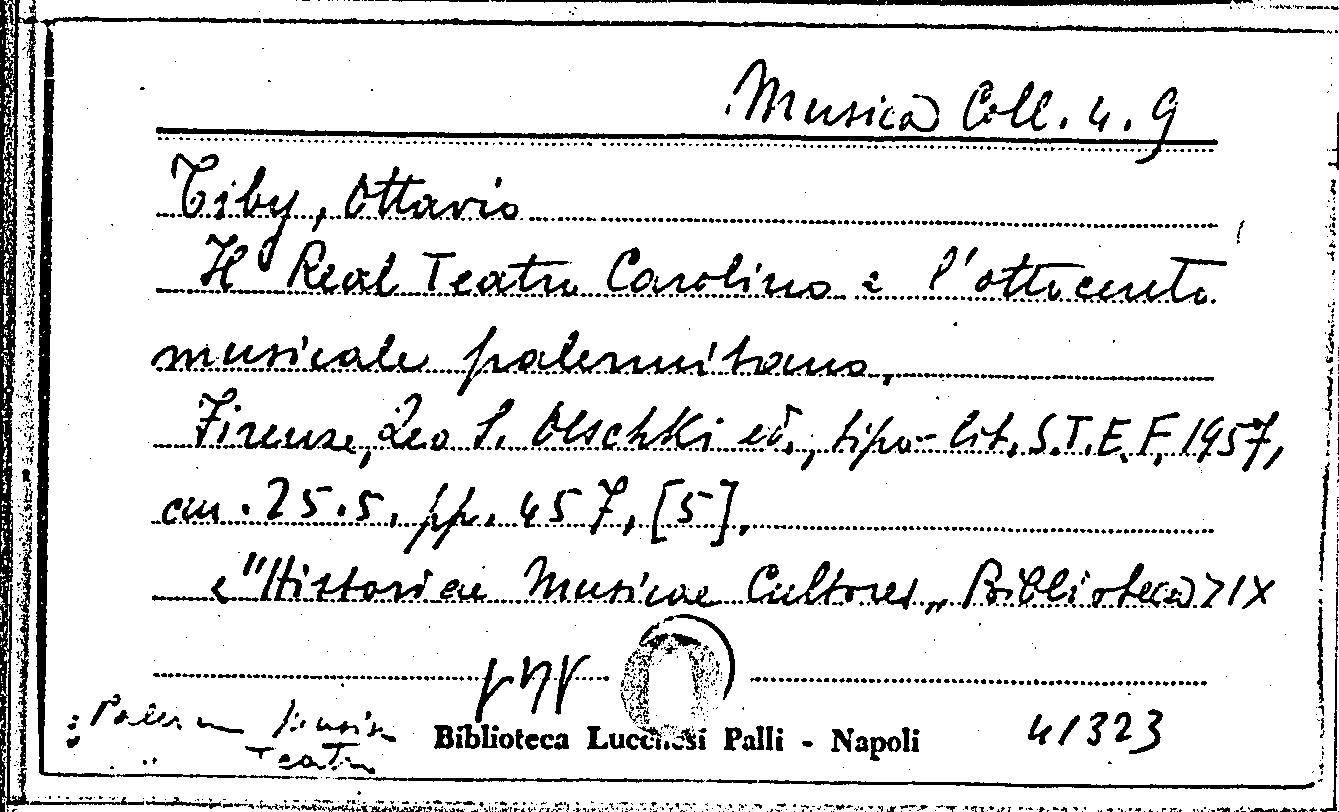 Musica Coll. 4. 9
Tiby, Ottavio
Il Real Teatro Carolino e l'ottocento
musicale palermitano,
Firenze, Leo S. Olschki ed., tipo-lit. S.T.E.F. 1957,
cm. 25.5. pp. 457, [5].
< "Historiae Musicae Cultores„ Biblioteca > IX
: Palermo Musica
: " Teatro
Biblioteca Lucchesi Palli - Napoli
41323